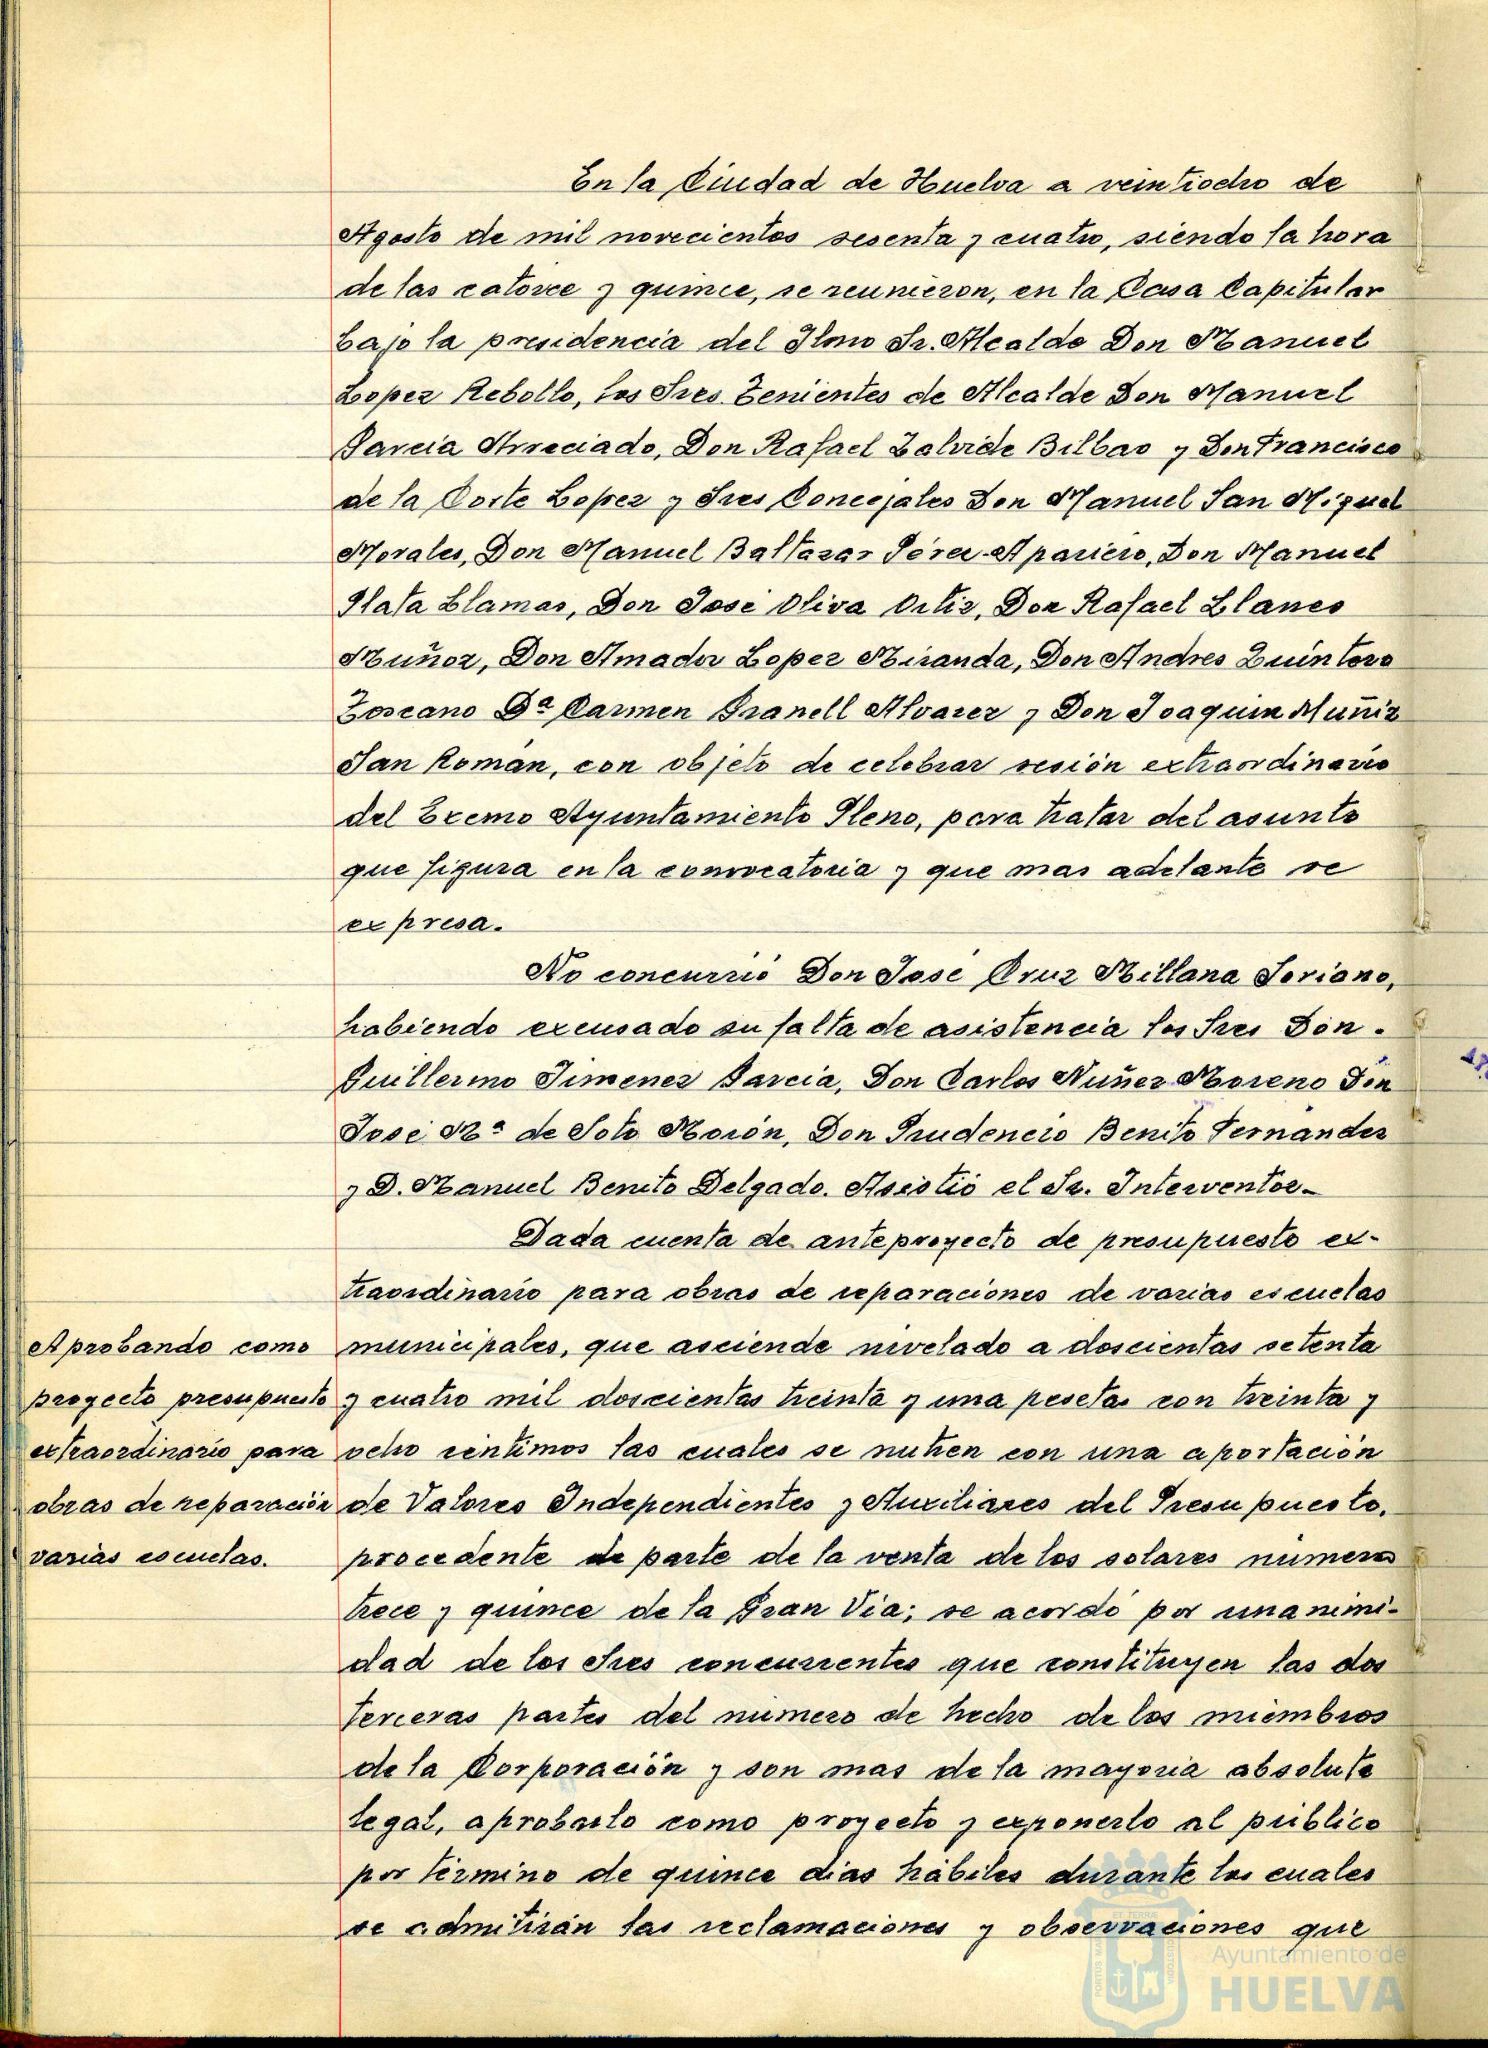 En la Ciudad de Huelva a veintiocho de
Agosto de mil novecientos sesenta y cuatro, siendo la hora
de las catorce y quince, se reunieron, en la Casa Capitular
bajo la presidencia del Ilmo Sr. Alcalde Don Manuel
Lopez Rebollo, los Sres. Tenientes de Alcalde Don Manuel
Garcia Arreciado, Don Rafael Zalvide Bilbao y Don Francisco
de la Corte Lopez y Sres Concejales Don Manuel San Miguel
Morales, Don Manuel Baltasar Pérez Aparicio, Don Manuel
Plata Llamas, Don José Oliva Ortiz, Don Rafael Llanes
Muñoz, Don Amador Lopez Miranda, Don Andres Quintero
Toscano Dª Carmen Granell Alvarez y Don Joaquin Muñiz
San Román, con objeto de celebrar sesión extraordinario
del Excmo Ayuntamiento Pleno, para tratar del asunto
que figura en la convocatoria y que mas adelante se
expresa.
No concurrió Don José Cruz Millana Soriano,
habiendo excusado su falta de asistencia los Sres Don.
Guillermo Jimenez Garcia, Don Carlos Nuñez Moreno Don
José Mª de Soto Morón, Don Prudencio Benito Fernandez
y D. Manuel Benito Delgado. Asistió el Sr. Interventor.
Dada cuenta de anteproyecto de presupuesto ex-
traordinario para obras de reparaciones de varias escuelas
Aprobando como
proyecto presupuesto
extraordinario para
obras de reparación
varias escuelas.
municipales, que asciende nivelado a doscientas setenta
y cuatro mil doscientas treinta y una pesetas con treinta y
ocho céntimos las cuales se nutren con una aportación
de Valores Independientes y Auxiliares del Presupuesto,
procedente de parte de la venta de los solares numeros
trece y quince de la Gran Via; se acordó por unanimi-
dad de los Sres concurrentes que constituyen las dos
terceras partes del numero de hecho de los miembros
de la Corporación y son mas de la mayoria absoluta
legal, aprobarlo como proyecto y exponerlo al público
por término de quince dias hábiles durante los cuales
se admitirán las reclamaciones y observaciones que
Ayuntamiento de
HUELVA